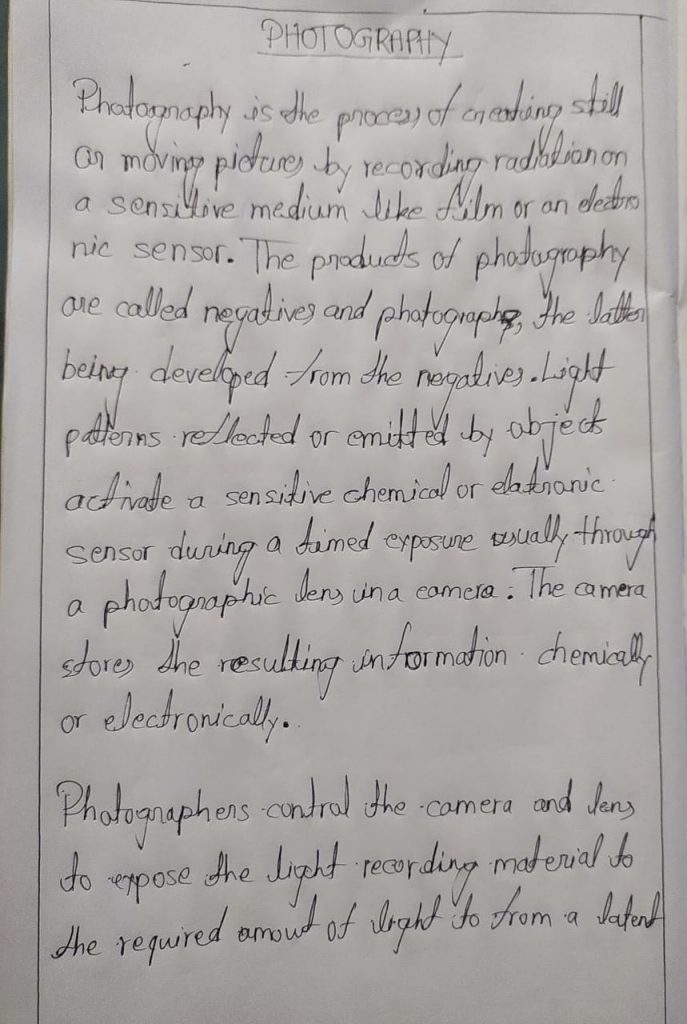 PHOTOGRAPHY
Photography is the process of creating still
or moving pictures by recording radiation on
a sensitive medium like film or an electro
nic sensor. The products of photography
are called negatives and photographs, the latter
being developed from the negatives. Light
patterns reflected or emitted by object
activate a sensitive chemical or elctronic
sensor during a timed exposure usually through
a photographic lens in a camera. The camera
stores the resulting information chemically
or electronically.
Photographers control the camera and lens
to expose the light recording material to
the required amout of light to from a latent